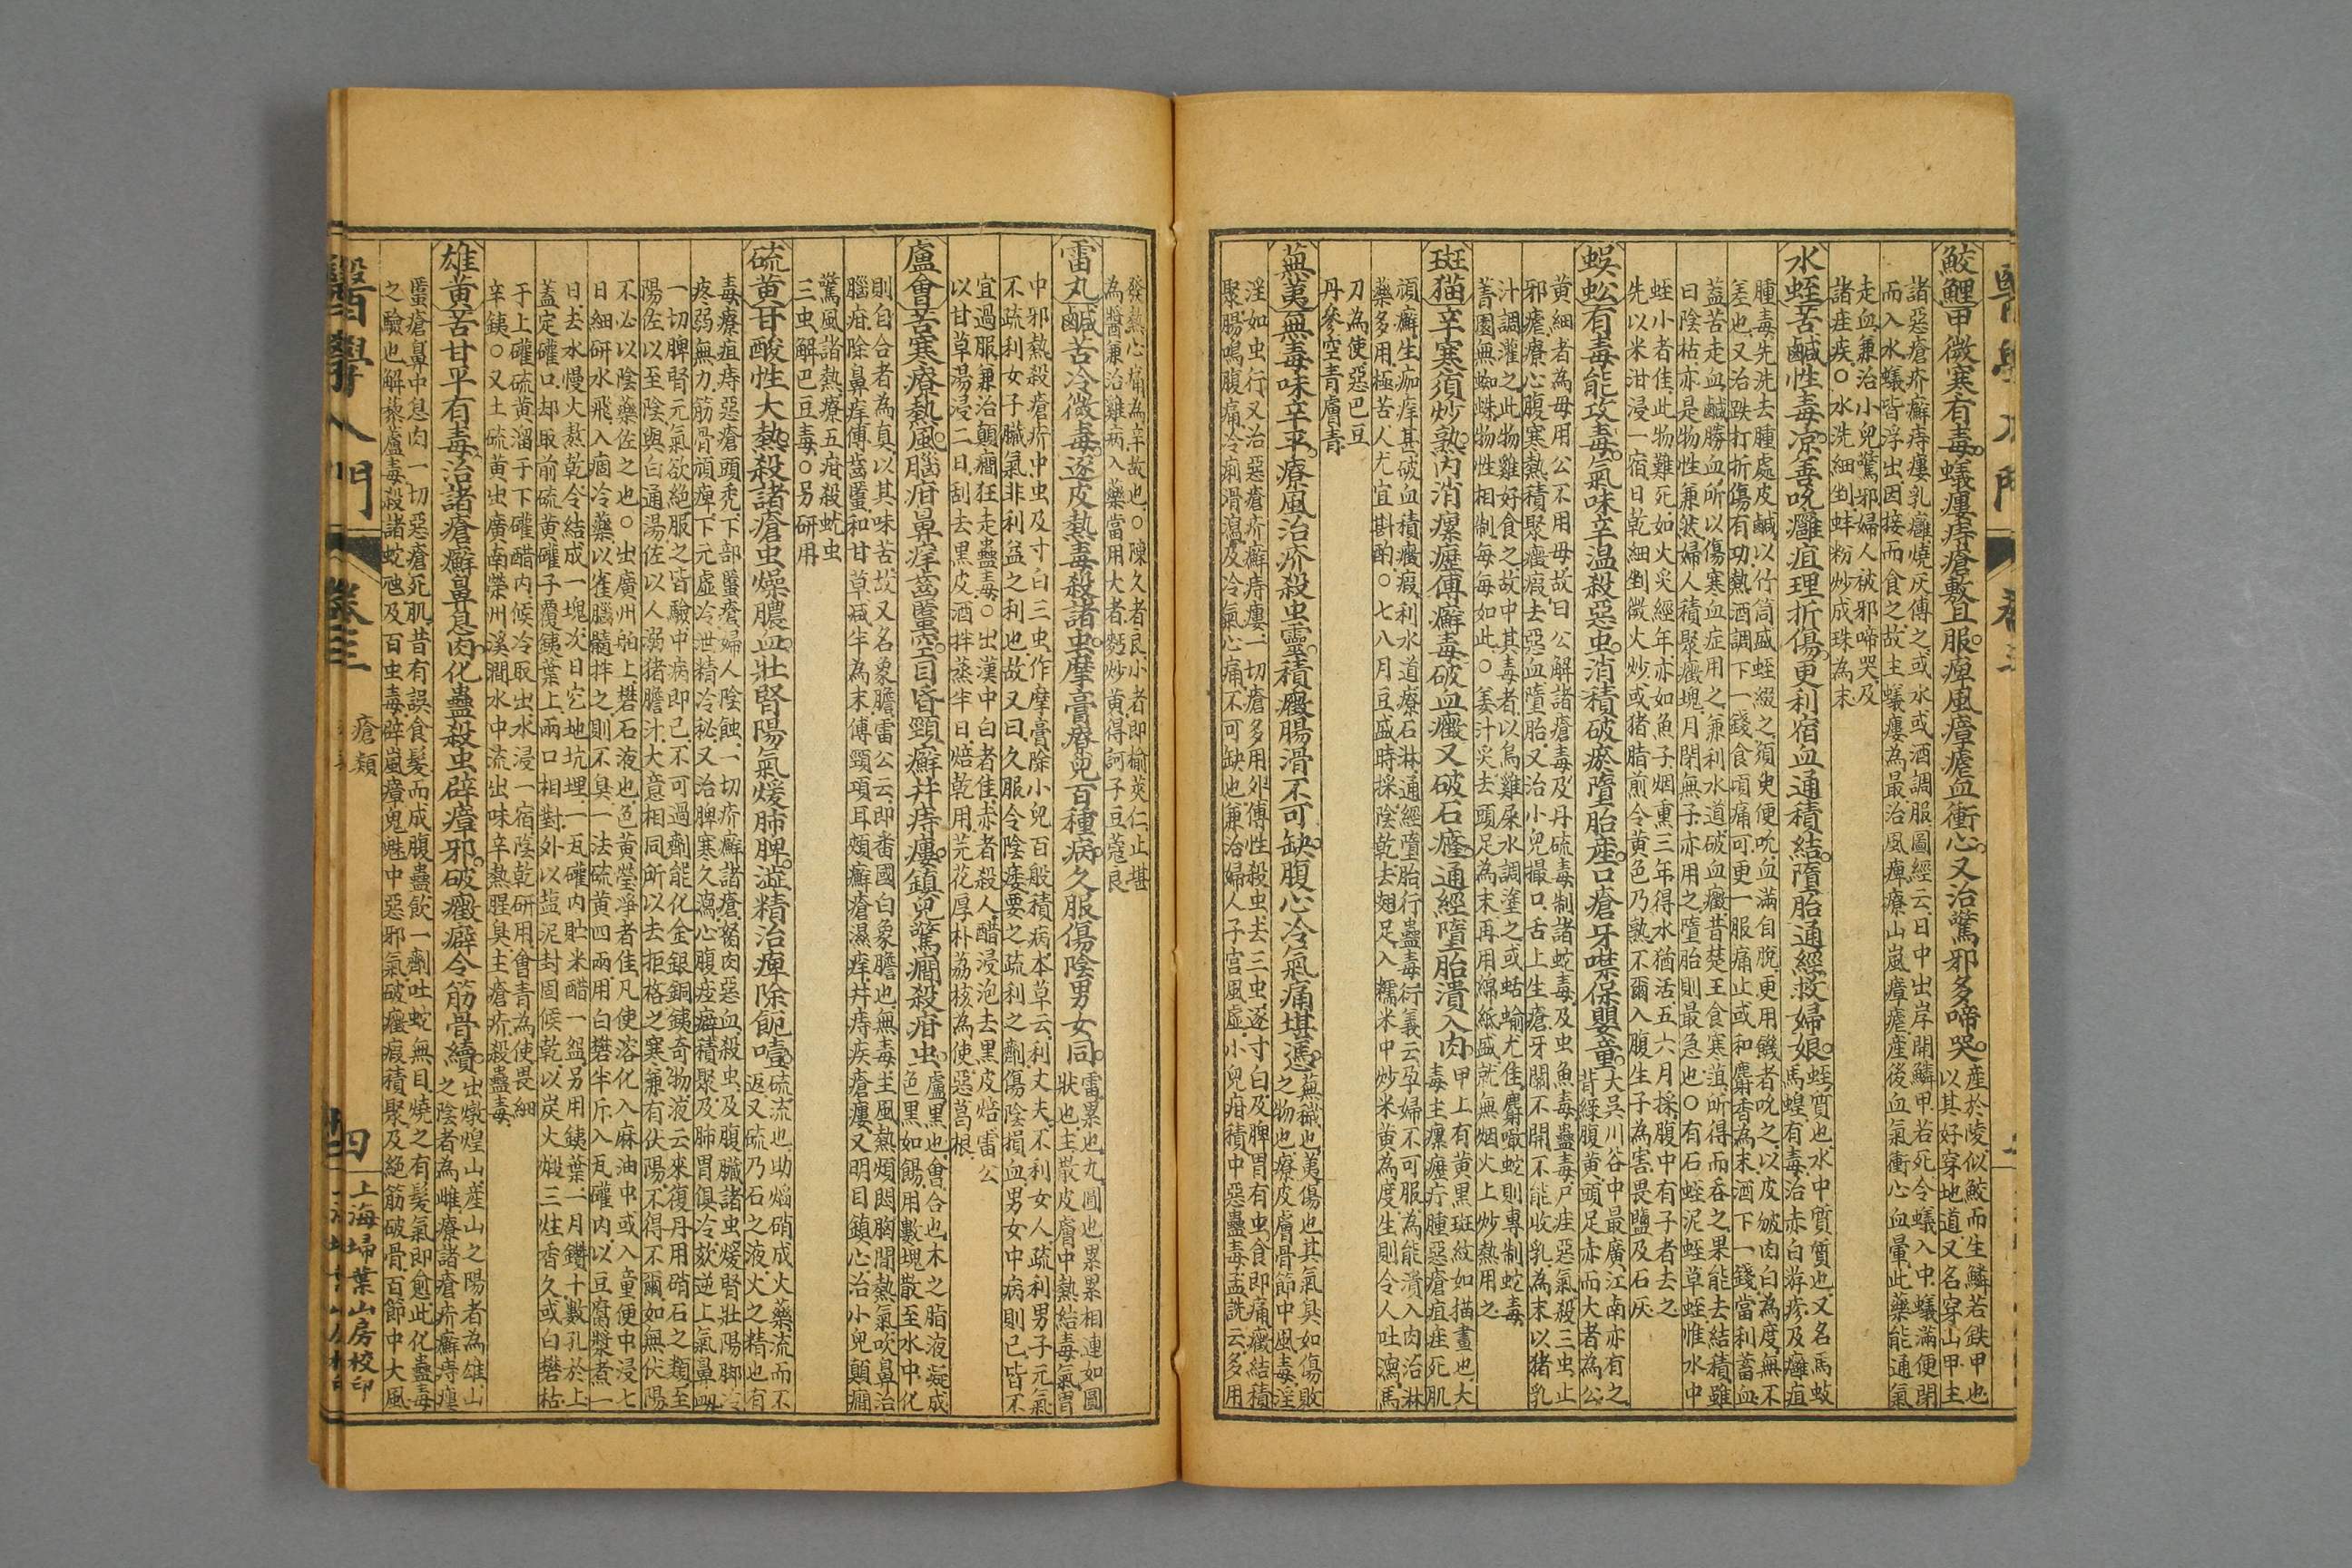 鯪鯉甲微寒有毒蟻瘻痔瘡敷且服痺風瘴瘧血衝心又治驚邪多啼哭産於陵似鮫而生鱗若鉄甲也
以其好穿地道又名穿山甲主
諸惡瘡疥癬痔瘻乳癰燒灰傅之或水或酒調服圖經云日中出岸開鱗甲若死令蟻入中蟻滿便閉
而入水蟻皆浮出因接而食之故主蟻瘻為最治風痺療山嵐瘴瘧産後血氣衝心血暈此藥能通氣
走血兼治小兒驚邪婦人被邪啼哭及
諸疰疾○水洗細剉蚌粉炒成珠為末
水蛭苦鹹性毒凉善吮癰疽理折傷更利宿血通積結墮胎通經救婦娘蛭質也水中質質也又名馬蚑
馬蝗有毒治赤白游疹及癰疽
腫毒先洗去腫處皮鹹以竹筒盛蛭綴之須臾便吮血滿自脫更用饑者吮之以皮皱肉白為度無不
差也又治跌打折傷有功熱酒調下一錢食頃痛可更一服痛止或和麝香為末酒下一錢當利蓄血
蓋苦走血鹹勝血所以傷寒血症用之兼利水道破血癥昔楚王食寒菹所得而吞之果能去結積雖
曰陰枯亦是物性兼然婦人積聚癥塊月閉無子亦用之墮胎則最急也○有石蛭泥蛭草蛭惟水中
蛭小者佳此物難死如火炙經年亦如魚子烟熏三年得水猶活五六月採腹中有子者去之
先以米泔浸一宿日乾細剉微火炒或猪脂煎令黄色乃熟不爾入腹生子為害畏鹽及石灰
蜈蚣有毒能攻毒氣味辛温殺惡虫消積破瘀墮胎産口瘡牙噤保嬰童大吳川谷中最廣江南亦有之
背綠腹黄頭足赤而大者為公
黄細者為母用公不用母故曰公解諸瘡毒及丹硫毒制諸蛇毒及虫魚毒蠱毒尸疰惡氣殺三虫止
邪瘧療心腹寒熱積聚癥瘕去惡血墮胎又治小兒撮口舌上生瘡牙關不開不能收乳為末以猪乳
汁調灌之此物雞好食之故中其毒者以烏雞屎水調塗之或蛞蝓尤佳麝噉蛇則專制蛇毒
菁園無蜘蛛物性相制每每如此○姜汁炙去頭足為末再用綿紙盛就無烟火上炒熱用之
斑猫辛寒須炒熟内消瘰癧傅癬毒破血癥又破石癃通經墮胎潰入肉甲上有黄黑斑紋如描畫也大
毒主瘰癧疔腫惡瘡疽疰死肌
頑癬生痂痒甚破血積癥瘕利水道療石淋通經墮胎行蠱毒衍義云孕婦不可服為能潰入肉治淋
藥多用極苦人尤宜斟酌○七八月豆盛時採陰乾去翅足入糯米中炒米黄為度生則令人吐瀉馬
刀為使惡巴豆
丹參空青膚青
蕪荑無毒味辛平療風治疥殺虫靈積癥腸滑不可缺腹心冷氣痛堪憑蕪穢也荑傷也其氣臭如傷敗
之物也療皮膚骨節中風毒淫
淫如虫行又治惡瘡疥癬痔瘻一切瘡多用外傅性殺虫去三虫逐寸白及脾胃有虫食即痛癥結積
聚腸鳴腹痛冷痢滑瀉及冷氣心痛不可缺也兼治婦人子宫風虚小兒疳積中惡蠱毒孟詵云多用
發熱心痛為辛故也○陳久者良小者即榆荚仁止堪
為醬兼治雞病入藥當用大者麪炒黄得訶子豆蔻良
雷丸鹹苦冷微毒逐皮熱毒殺諸虫摩膏療兒百種病久服傷陰男女同雷累也丸圓也累累相連如圓
狀也主散皮膚中熱結毒氣胃
中邪熱殺瘡疥虫及寸白三虫作摩膏除小兒百般積病本草云利丈夫不利女人疏利男子元氣
不疏利女子臟氣非利益之利也故又曰久服令陰痿要之疏利之劑傷陰損血男女中病則已皆不
宜過服兼治顛癎狂走蠱毒○出漢中白者佳赤者殺人醋浸泡去黑皮焙雷公
以甘草湯浸二日刮去黑皮酒拌蒸半日焙乾用芫花厚朴蒻核為使惡葛根
盧會苦寒療熱風腦疳鼻痒齒䘌空目昏頸癬并痔瘻鎮兒驚癎殺疳虫盧黑也會合也木之脂液凝成
色黑如餳用數塊散至水中化
則自合者為真以其味苦故又名象膽雷公云即畨國白象膽也無毒主風熱煩悶胸間熱氣吹鼻治
腦疳除鼻痒傅齒䘌和甘草𡇓半為末傅頸項耳頰癬瘡濕痒并痔疾瘡瘻又明目鎮心治小兒顛癎
驚風諸熱療五疳殺蚘虫
三虫解巴豆毒○另研用
硫黄甘酸性大熱殺諸瘡虫燥膿血壯腎陽氣煖肺脾澁精治痺除飽噎硫流也助焰硝成火藥流而不
返又硫乃石之液火之精也有
毒療疽痔惡瘡頭秃下部䘌瘡婦人陰蝕一切疥癬諸瘡努肉惡血殺虫及腹臟諸虫煖腎壯陽脚冷
疼弱無力筋骨頑痺下元虚冷泄精冷秘又治脾寒久瀉心腹痃癖積聚及肺胃俱冷欬逆上氣鼻衄
一切脾腎元氣欲絶服之皆驗中病即已不可過劑能化金銀銅銕奇物液云來復丹用硝石之類至
陽佐以至陰與白通湯佐以人溺猪膽汁大意相同所以去拒格之寒兼有伏陽不得不爾如無伏陽
不必以陰藥佐之也○出廣州舶上礬石液也色黄瑩淨者佳凡使溶化入麻油中或入童便中浸七
日細研水飛入痼冷藥以雀腦髓拌之則不臭一法硫黄四兩用白礬半斤入瓦罐内以豆腐漿煮一
日去水慢火熬乾令結成一塊次日穵地坑埋一瓦罐内貯米醋一𥁐另用銕葉一月鑽十數孔於上
蓋定罐口却取前硫黄罐子覆銕葉上兩口相對外以塩泥封固候乾以炭火煅三炷香久或白礬枯
于上罐硫黄溜于下罐醋内候冷取出水浸一宿陰乾研用會青為使畏細
辛銕○又土硫黄虫廣南榮州溪澗水中流出味辛熱腥臭主瘡疥殺蟲毒
雄黄苦甘平有毒治諸瘡癬鼻息肉化蠱殺虫辟瘴邪破癥癖令筋骨續出燉煌山産山之陽者為雄山
之陰者為雌療諸瘡疥癬痔瘻
䘌瘡鼻中息肉一切惡瘡死肌昔有誤食髮而成腹蠱飲一劑吐蛇無目燒之有髮氣即愈此化蠱毒
之驗也解藜蘆毒殺諸蛇虺及百虫毒辟嵐瘴鬼魅中惡邪氣破癥瘕積聚及絶筋破骨百節中大風
醫學入門 卷三 瘡類 四 上海埽葉山房校印